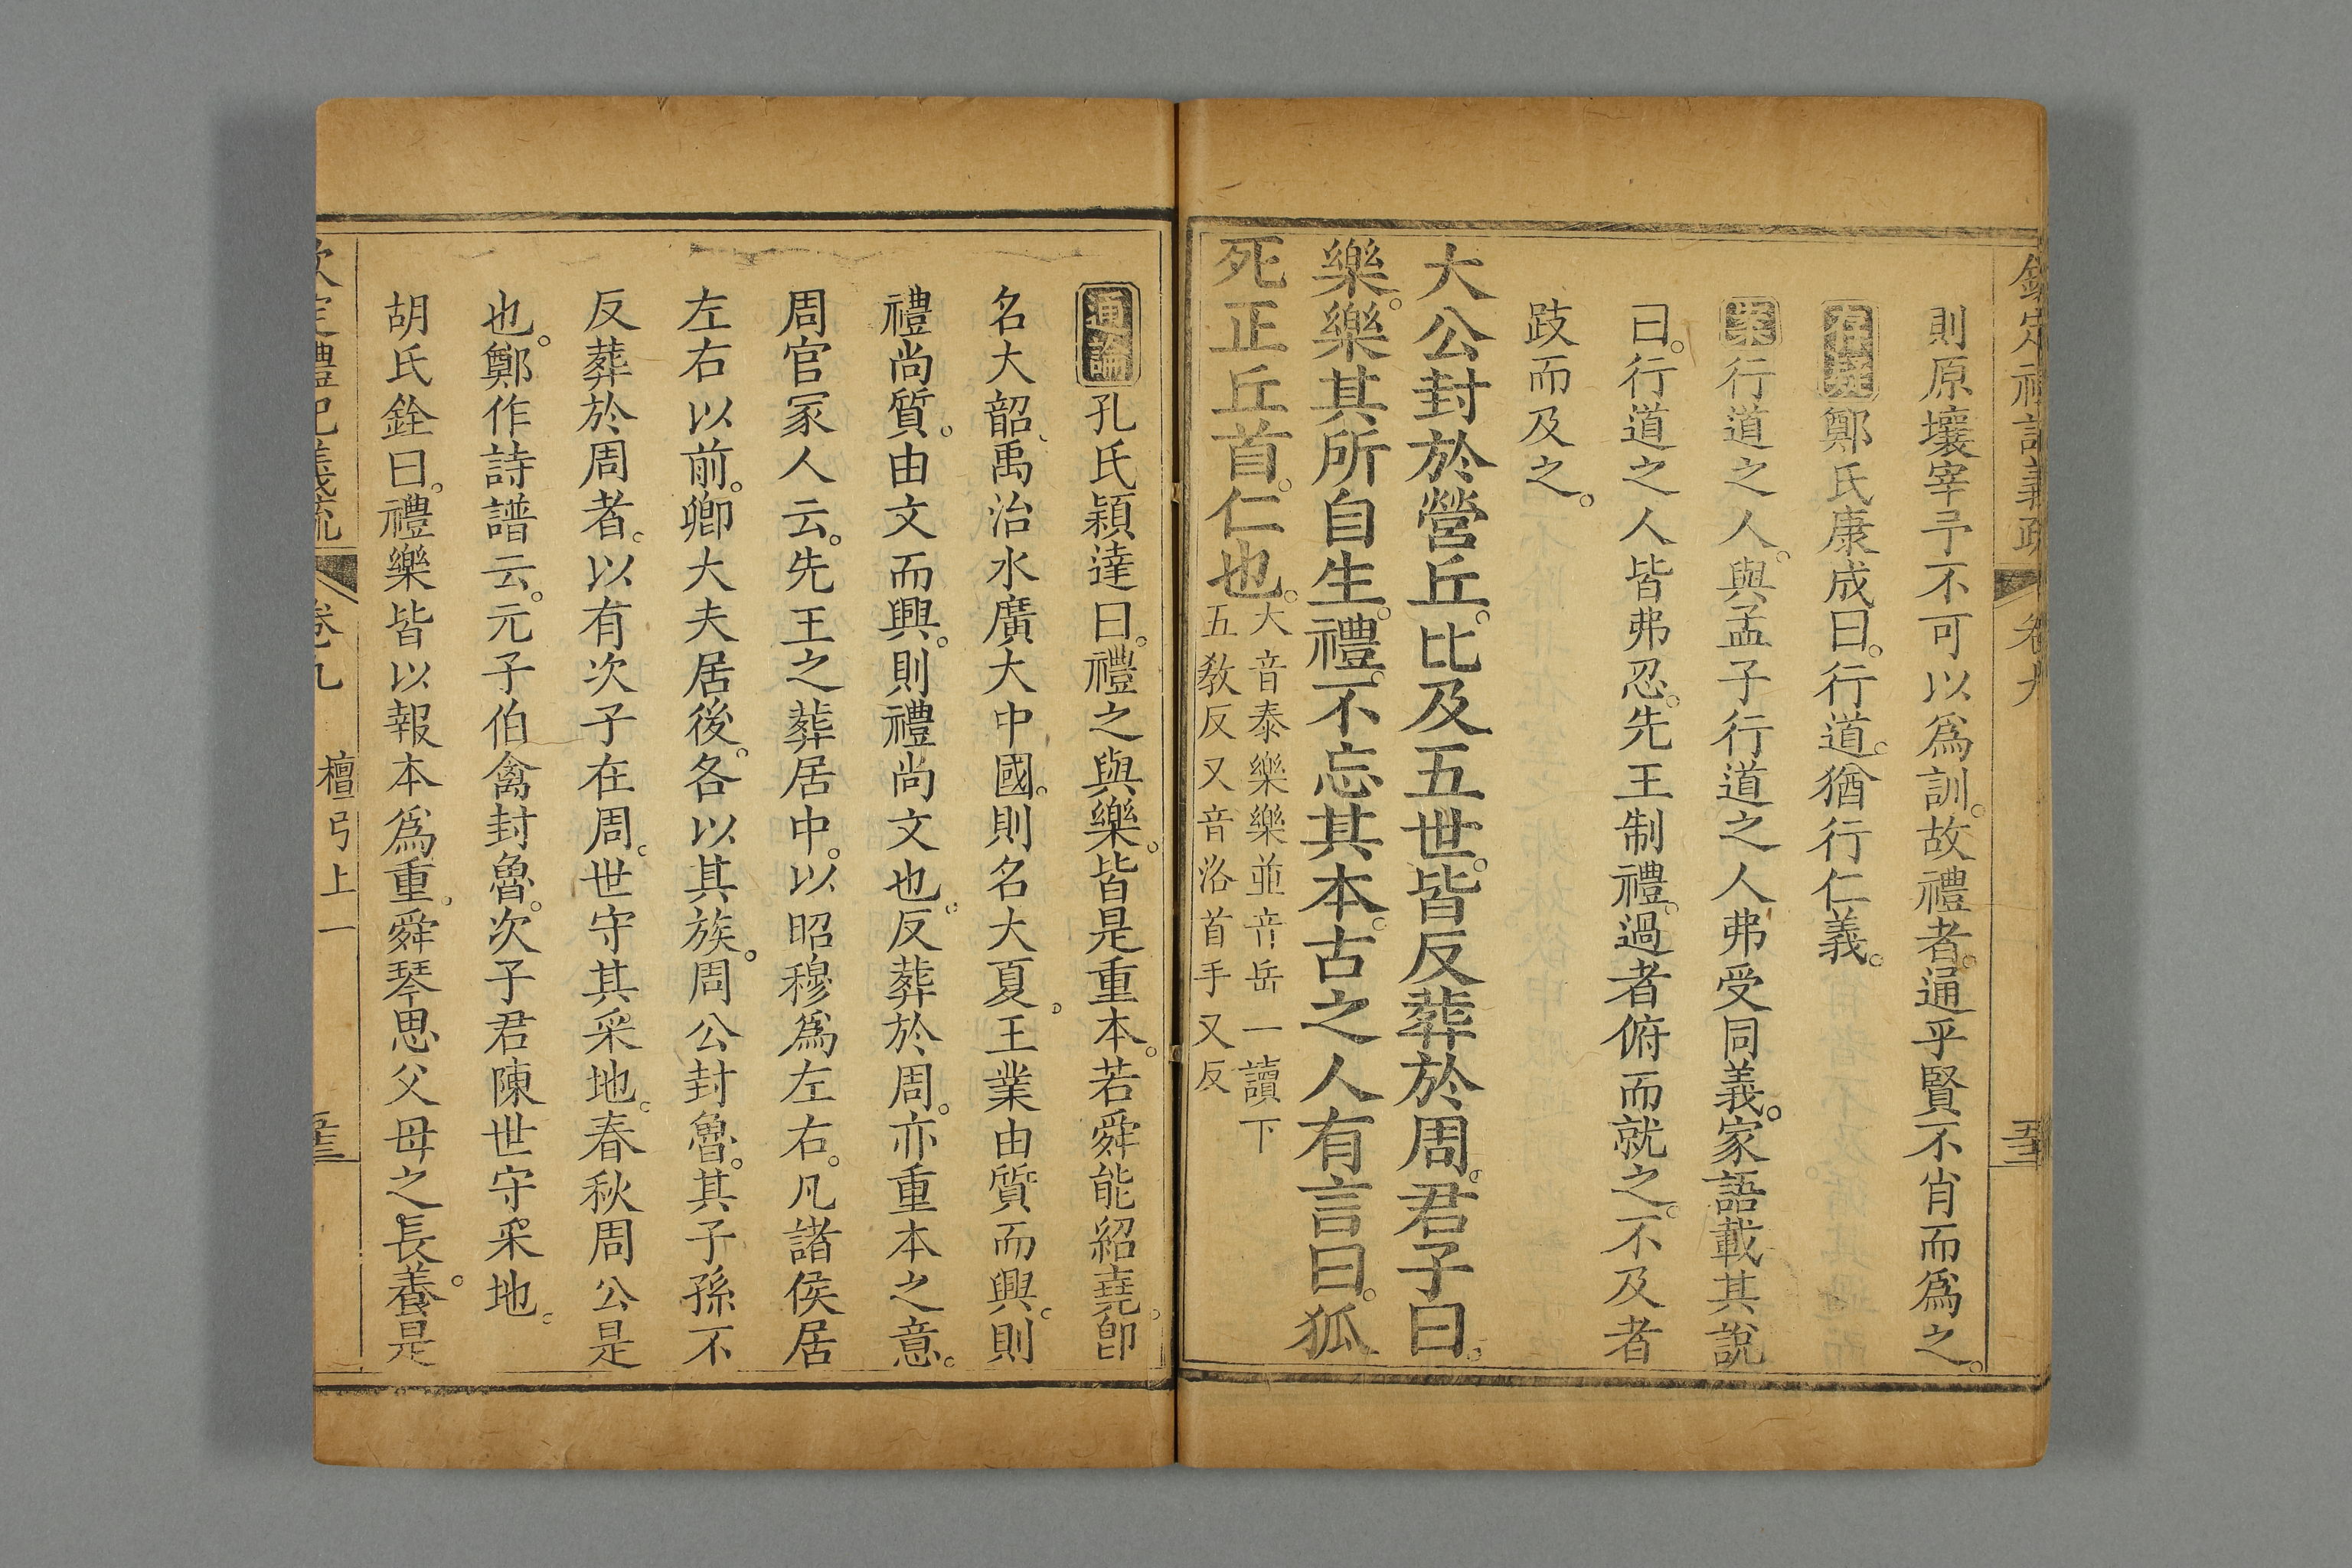 欽定禮記義疏 卷九
則原壤宰予不可以為訓。故禮者。通乎賢不肖而為之。
存疑 鄭氏康成曰。行道。猶行仁義。
案 行道之人。與孟子行道之人弗受同義。家語載其說
曰。行道之人皆弗忍。先王制禮。過者俯而就之。不及者
跂而及之。
大公封於營丘。比及五世。皆反葬於周。君子曰。
樂。樂其所自生。禮。不忘其本。古之人有言曰。狐
死正丘首。仁也。大音泰樂樂並音岳一讀下
五教反又音洛首手又反
通論 孔氏穎達曰。禮之與樂。皆是重本。若舜能紹堯。卽
名大韶、禹治水廣大中國。則名大夏。王業由質而興。則
禮尚質。由文而興。則禮尚文也。反葬於周。亦重本之意。
周官冢人云。先王之葬居中。以昭穆為左右。凡諸侯居
左右以前。卿大夫居後。各以其族。周公封魯。其子孫不
反葬於周者。以有次子在周。世守其采地。春秋周公是
也。鄭作詩譜云。元子伯禽封魯。次子君陳世守采地。
胡氏銓曰。禮樂皆以報本為重。舜琴思父母之長養。是
欽定禮記義疏 卷九 檀弓上一